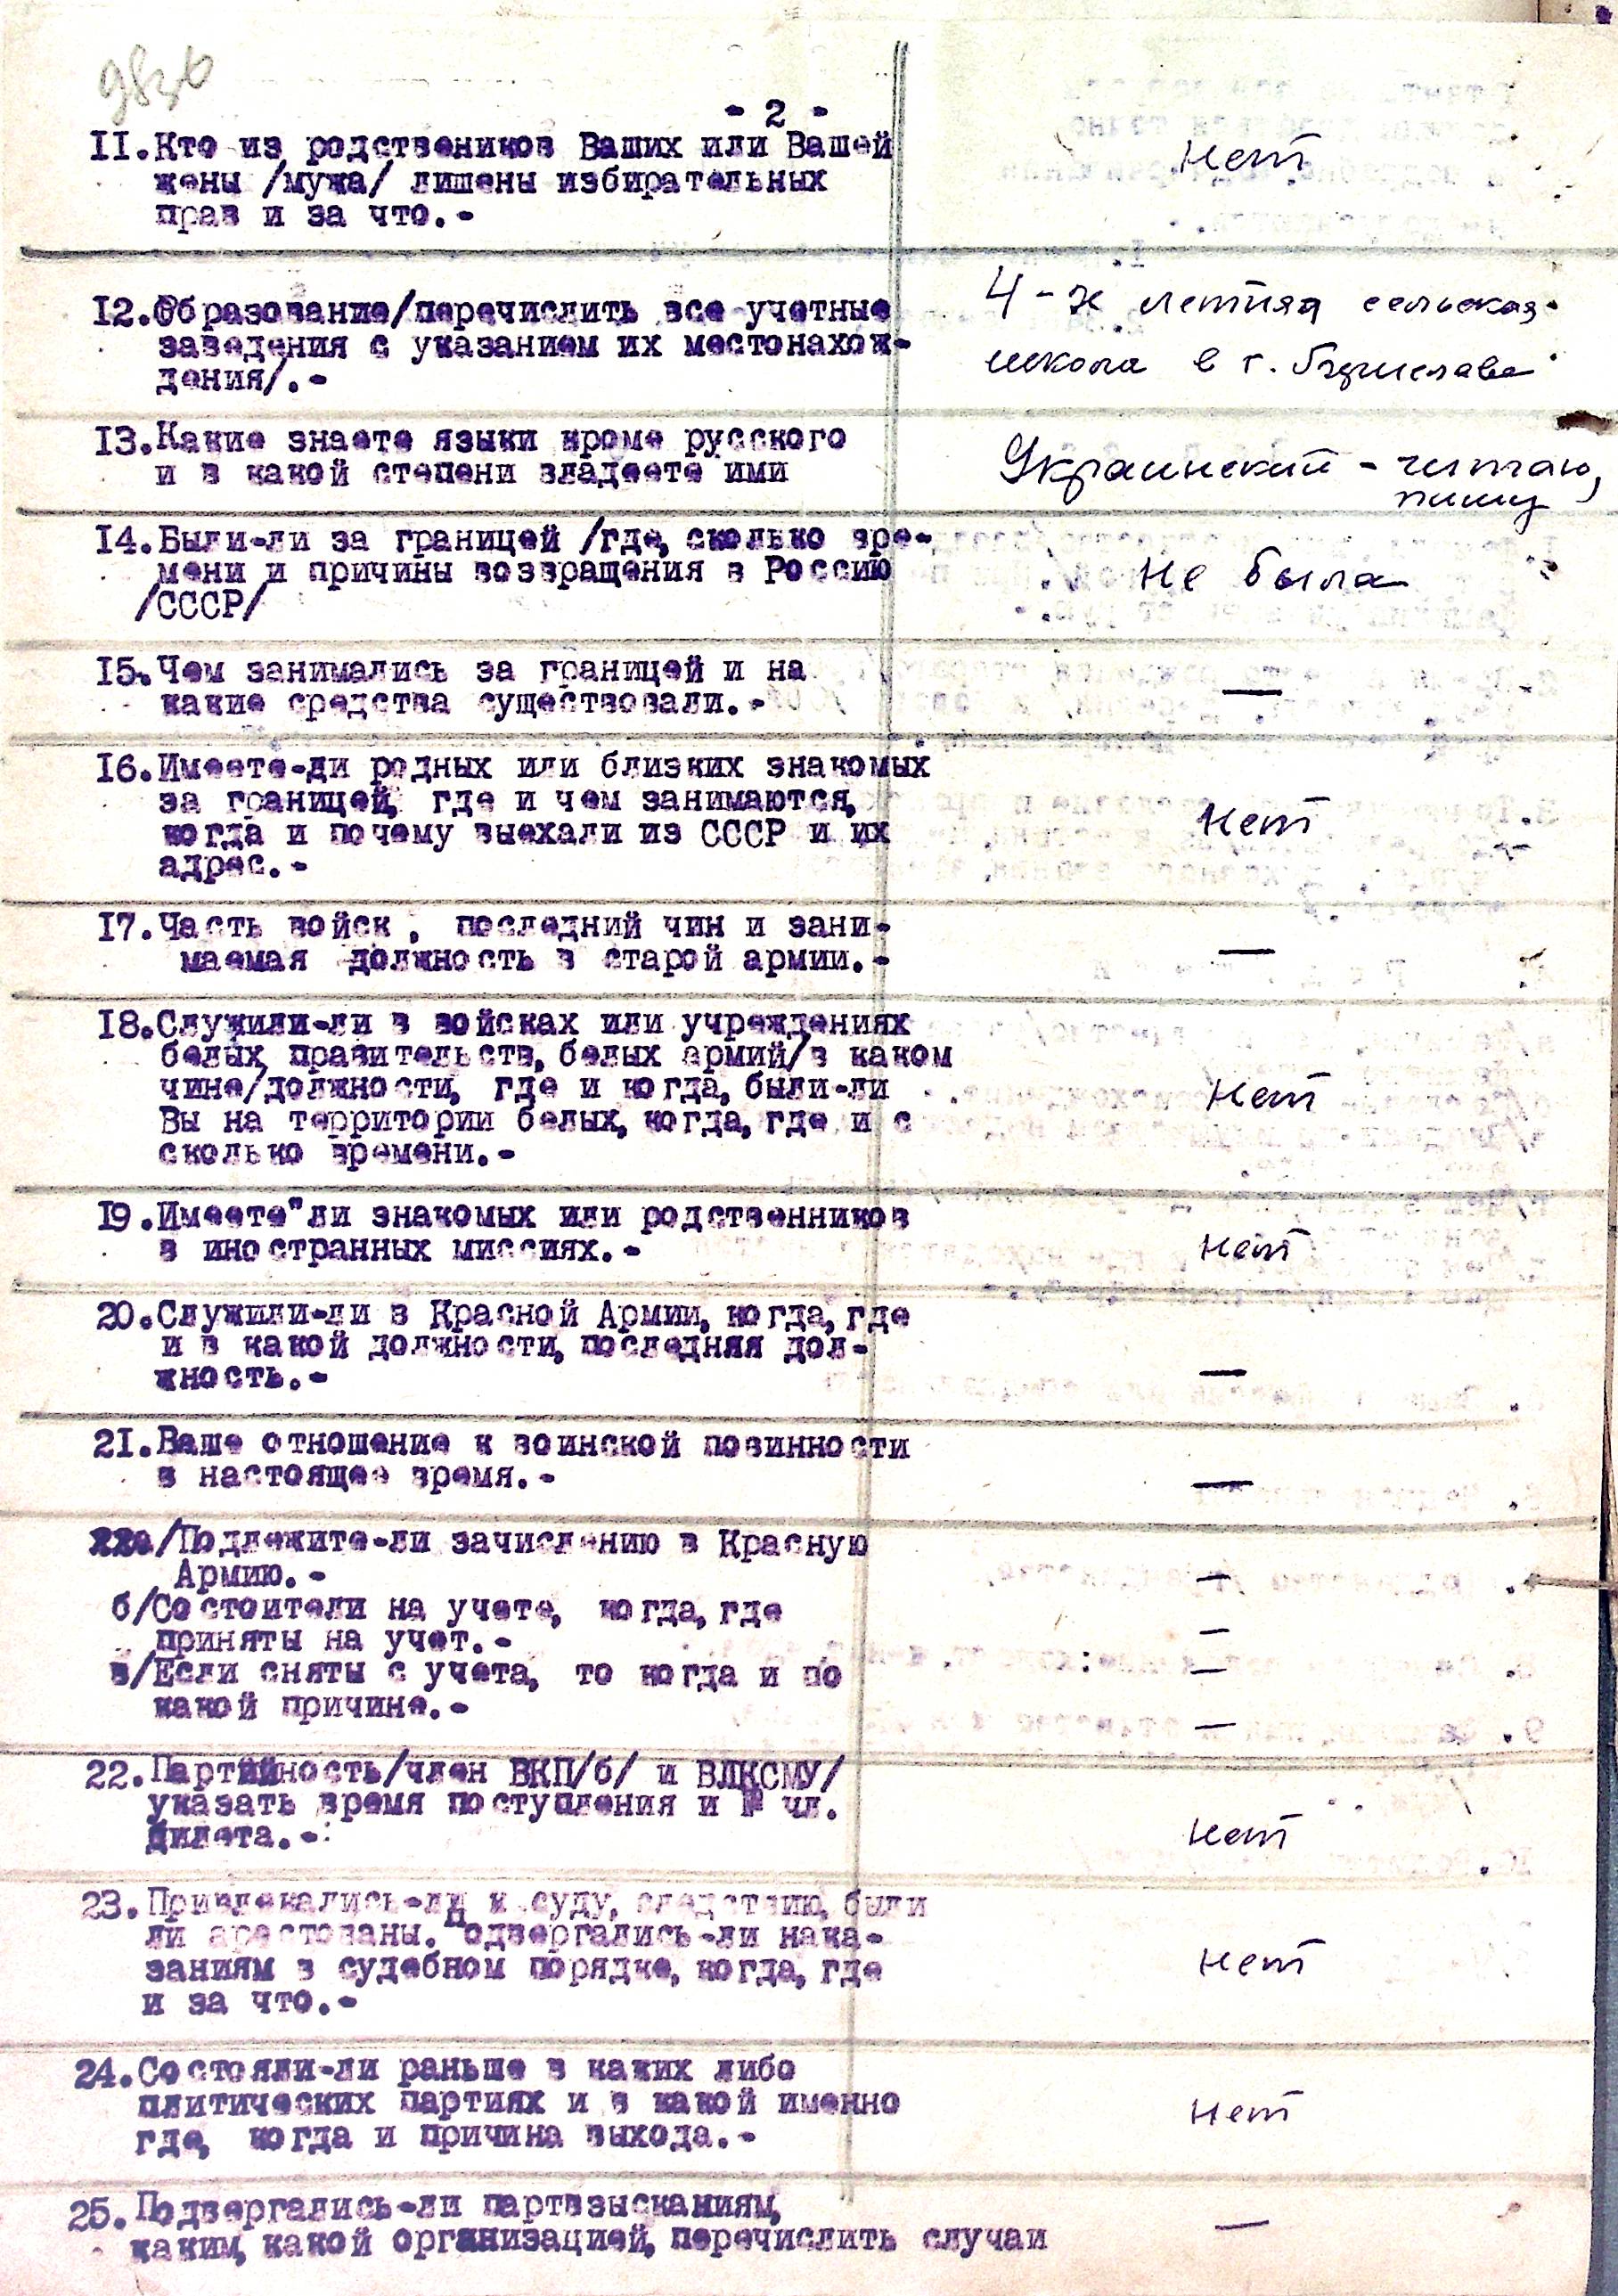 983б
- 2 -
II.Кто из родствеников Ваших или Вашей
жены /мужа/ лишены избирательных
прав и за что.-
Нет
I2.Образование/перечислить все учетные
заведения с указанием их местонахож-
дения/.-
4-х летняя сельская
школа в г.
I3.Какие знаете языки кроме русского
и в какой степени владеете ими
Украинский - читаю,
пишу
I4.Были-ли за границей /где, сколько вре-
мени и причины возвращения в Россию
/СССР/
Не была
I5.Чем занимались за границей и на
какие средства существовали.-
—
I6.Имеете-ли родных или близких знакомых
за границей, где и чем занимаются,
когда и почему выехали из СССР и их
адрес.-
Нет
I7.Часть войск, последний чин и зани-
маемая должность в старой армии.-
—
I8.Служили-ли в войсках или учреждениях
белых правительств, белых армий/в каком
чине/должности, где и когда, были-ли
Вы на территории белых, когда, где и с
сколько времени.-
Нет
I9.Имеете"ли знакомых или родственников
в иностранных миссиях.-
Нет
20.Служили-ли в Красной Армии, когда, где
и в какой должности, последняя дол-
жность.-
—
2I.Ваше отношение к воинской повинности
в настоящее время.-
—
22а/Подлежите-ли зачислению в Красную
Армию.-
—
б/Состоители на учете, когда, где
приняты на учет.-
—
в/Если сняты с учета, то когда и по
какой причине.-
—
—
22.Партийность/член ВКП/б/ и ВЛКСМУ/
указать время поступления и № чл.
билета.-
Нет
23.Привлекались-ли к суду, следствию, были
ли арестованы. Подвергались-ли нака-
заниям в судебном порядке, когда, где
и за что.-
Нет
24.Состояли-ли раньше в каких либо
плитических партиях и в какой именно
где, когда и причина выхода.-
Нет
25.Подвергались-ли партвзысканиям,
каким, какой организацией, перечислить случаи
—